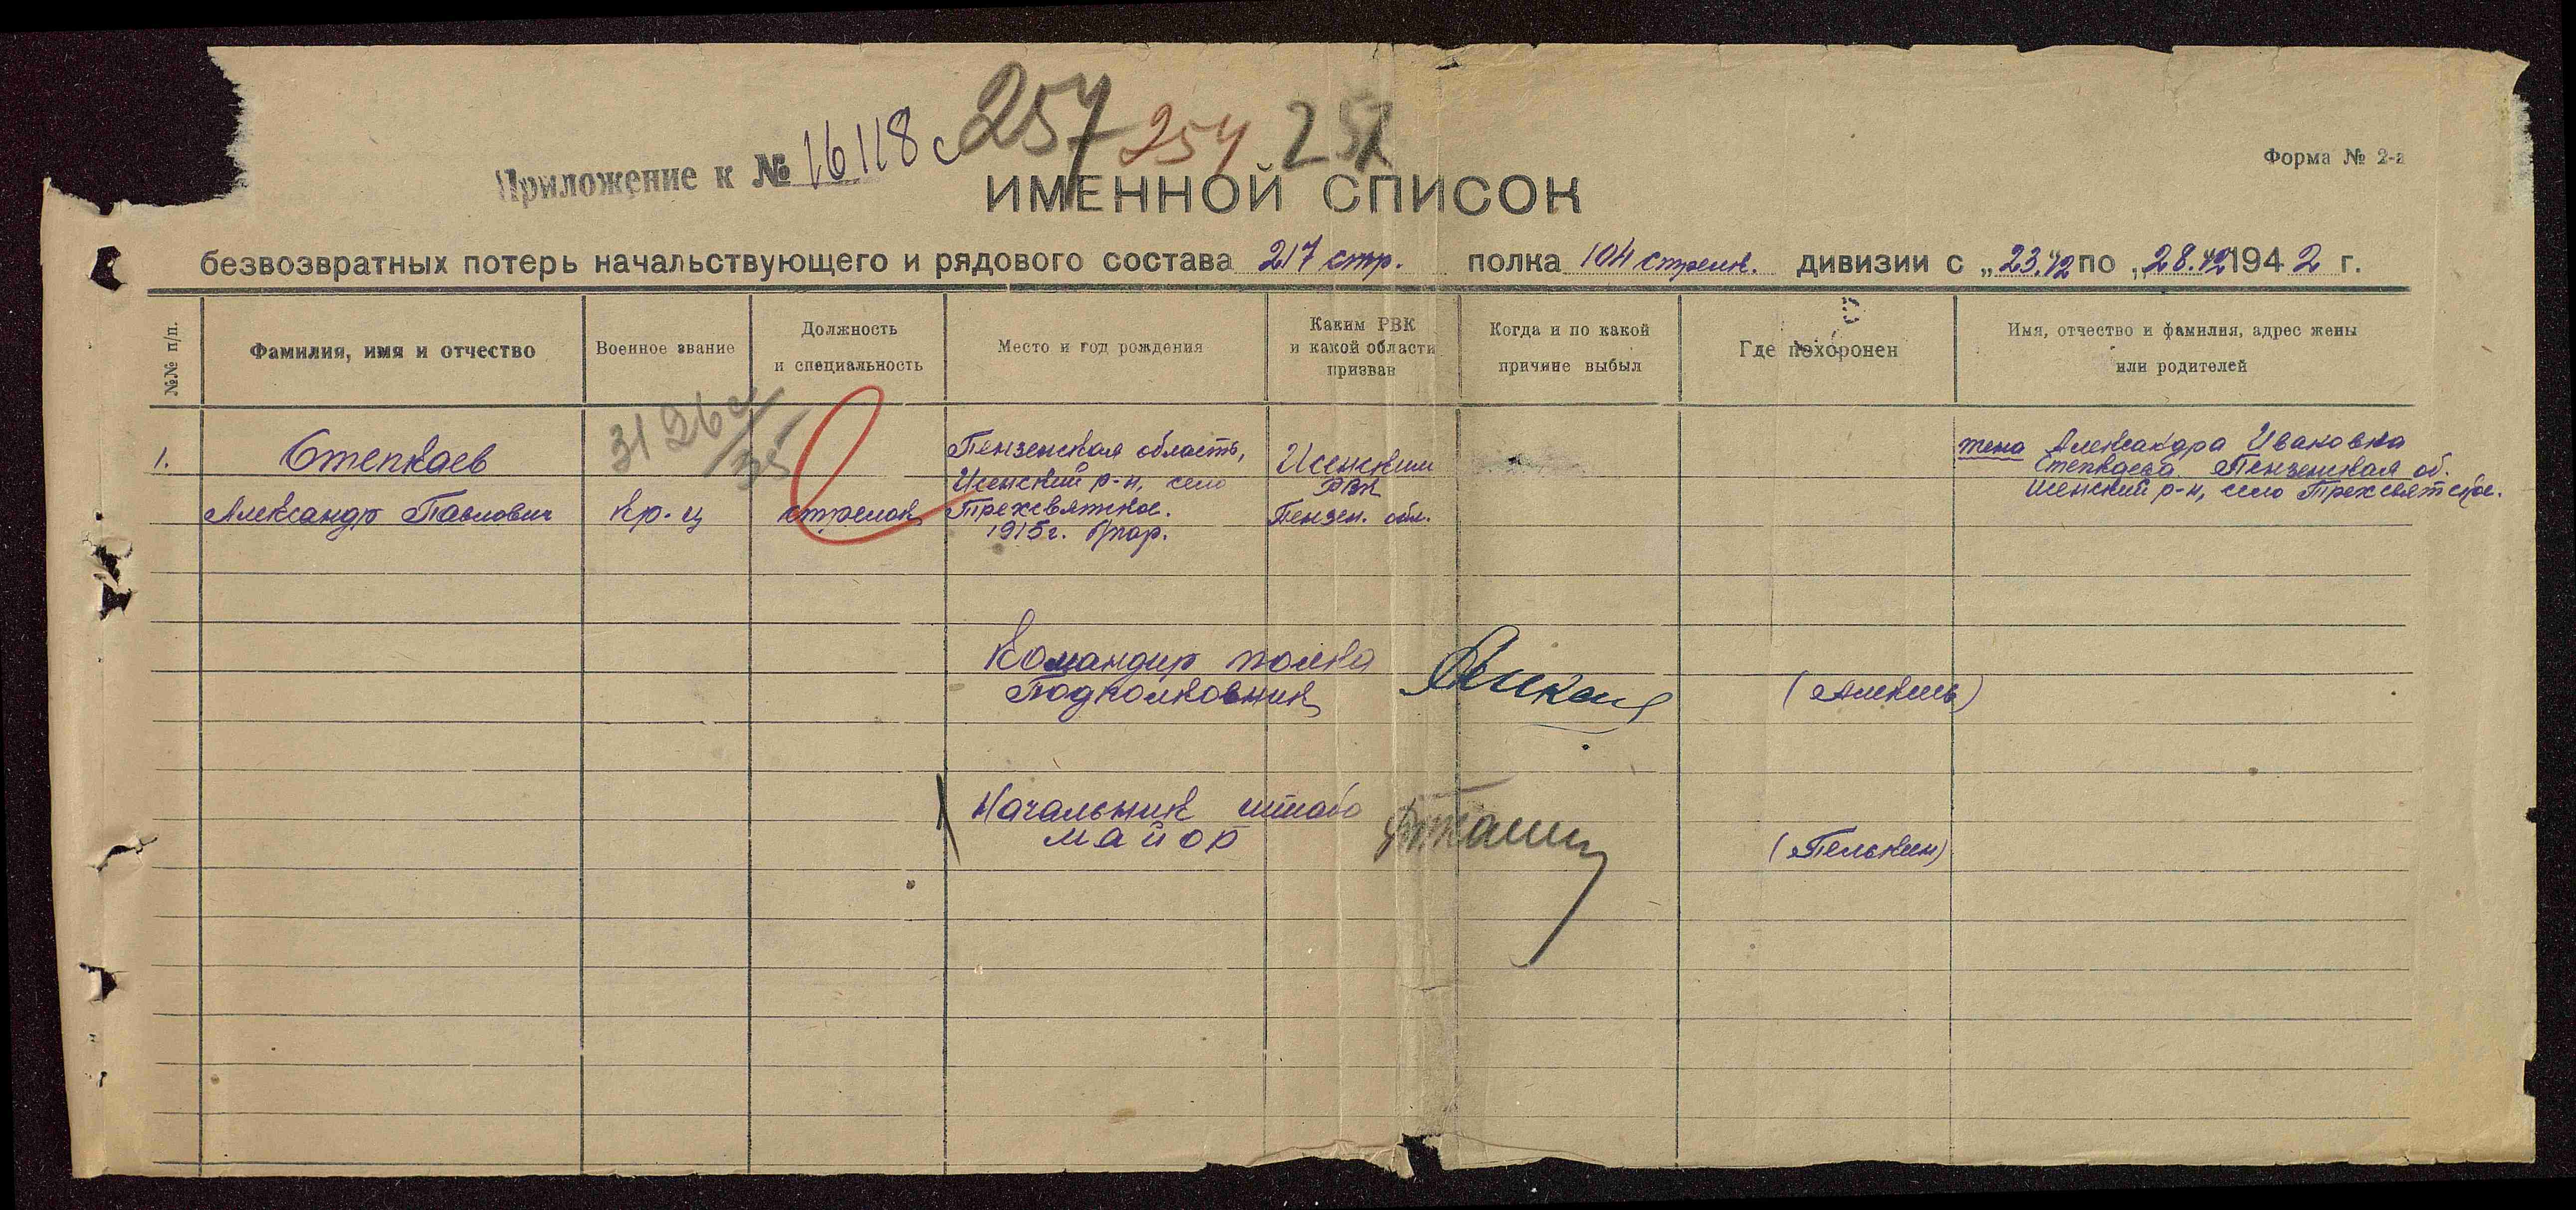 257 254 252
Приложение к № 16118 с
Форма № 2-а
ИМЕННОЙ СПИСОК
безвозвратных потерь начальствующего и рядового состава 217 стр. полка 104 стрелк. дивизии с „23.12 по „28.12 1942 г.
№№ п/п.
Фамилия, имя и отчество
Военное звание
Должность
и специальность
Место и год рождения
Каким РВК
и какой области
призван
Когда и по какой
причине выбыл
Где похоронен
Имя, отчество и фамилия, адрес жены
или родителей
1.
Степкаев
Александр Павлович
кр-ц
стрелок
Пензенская область,
Иссенский р-н, село
Трехсвятское.
1915 г. б/пар.
РВК
Пензен. обл.
жена Александра Ивановна
Степкаева Пензенская об.
р-н, село Трехсвятское.
Командир полка
Подполковник
Начальник штаба
майор
(Пелькин)